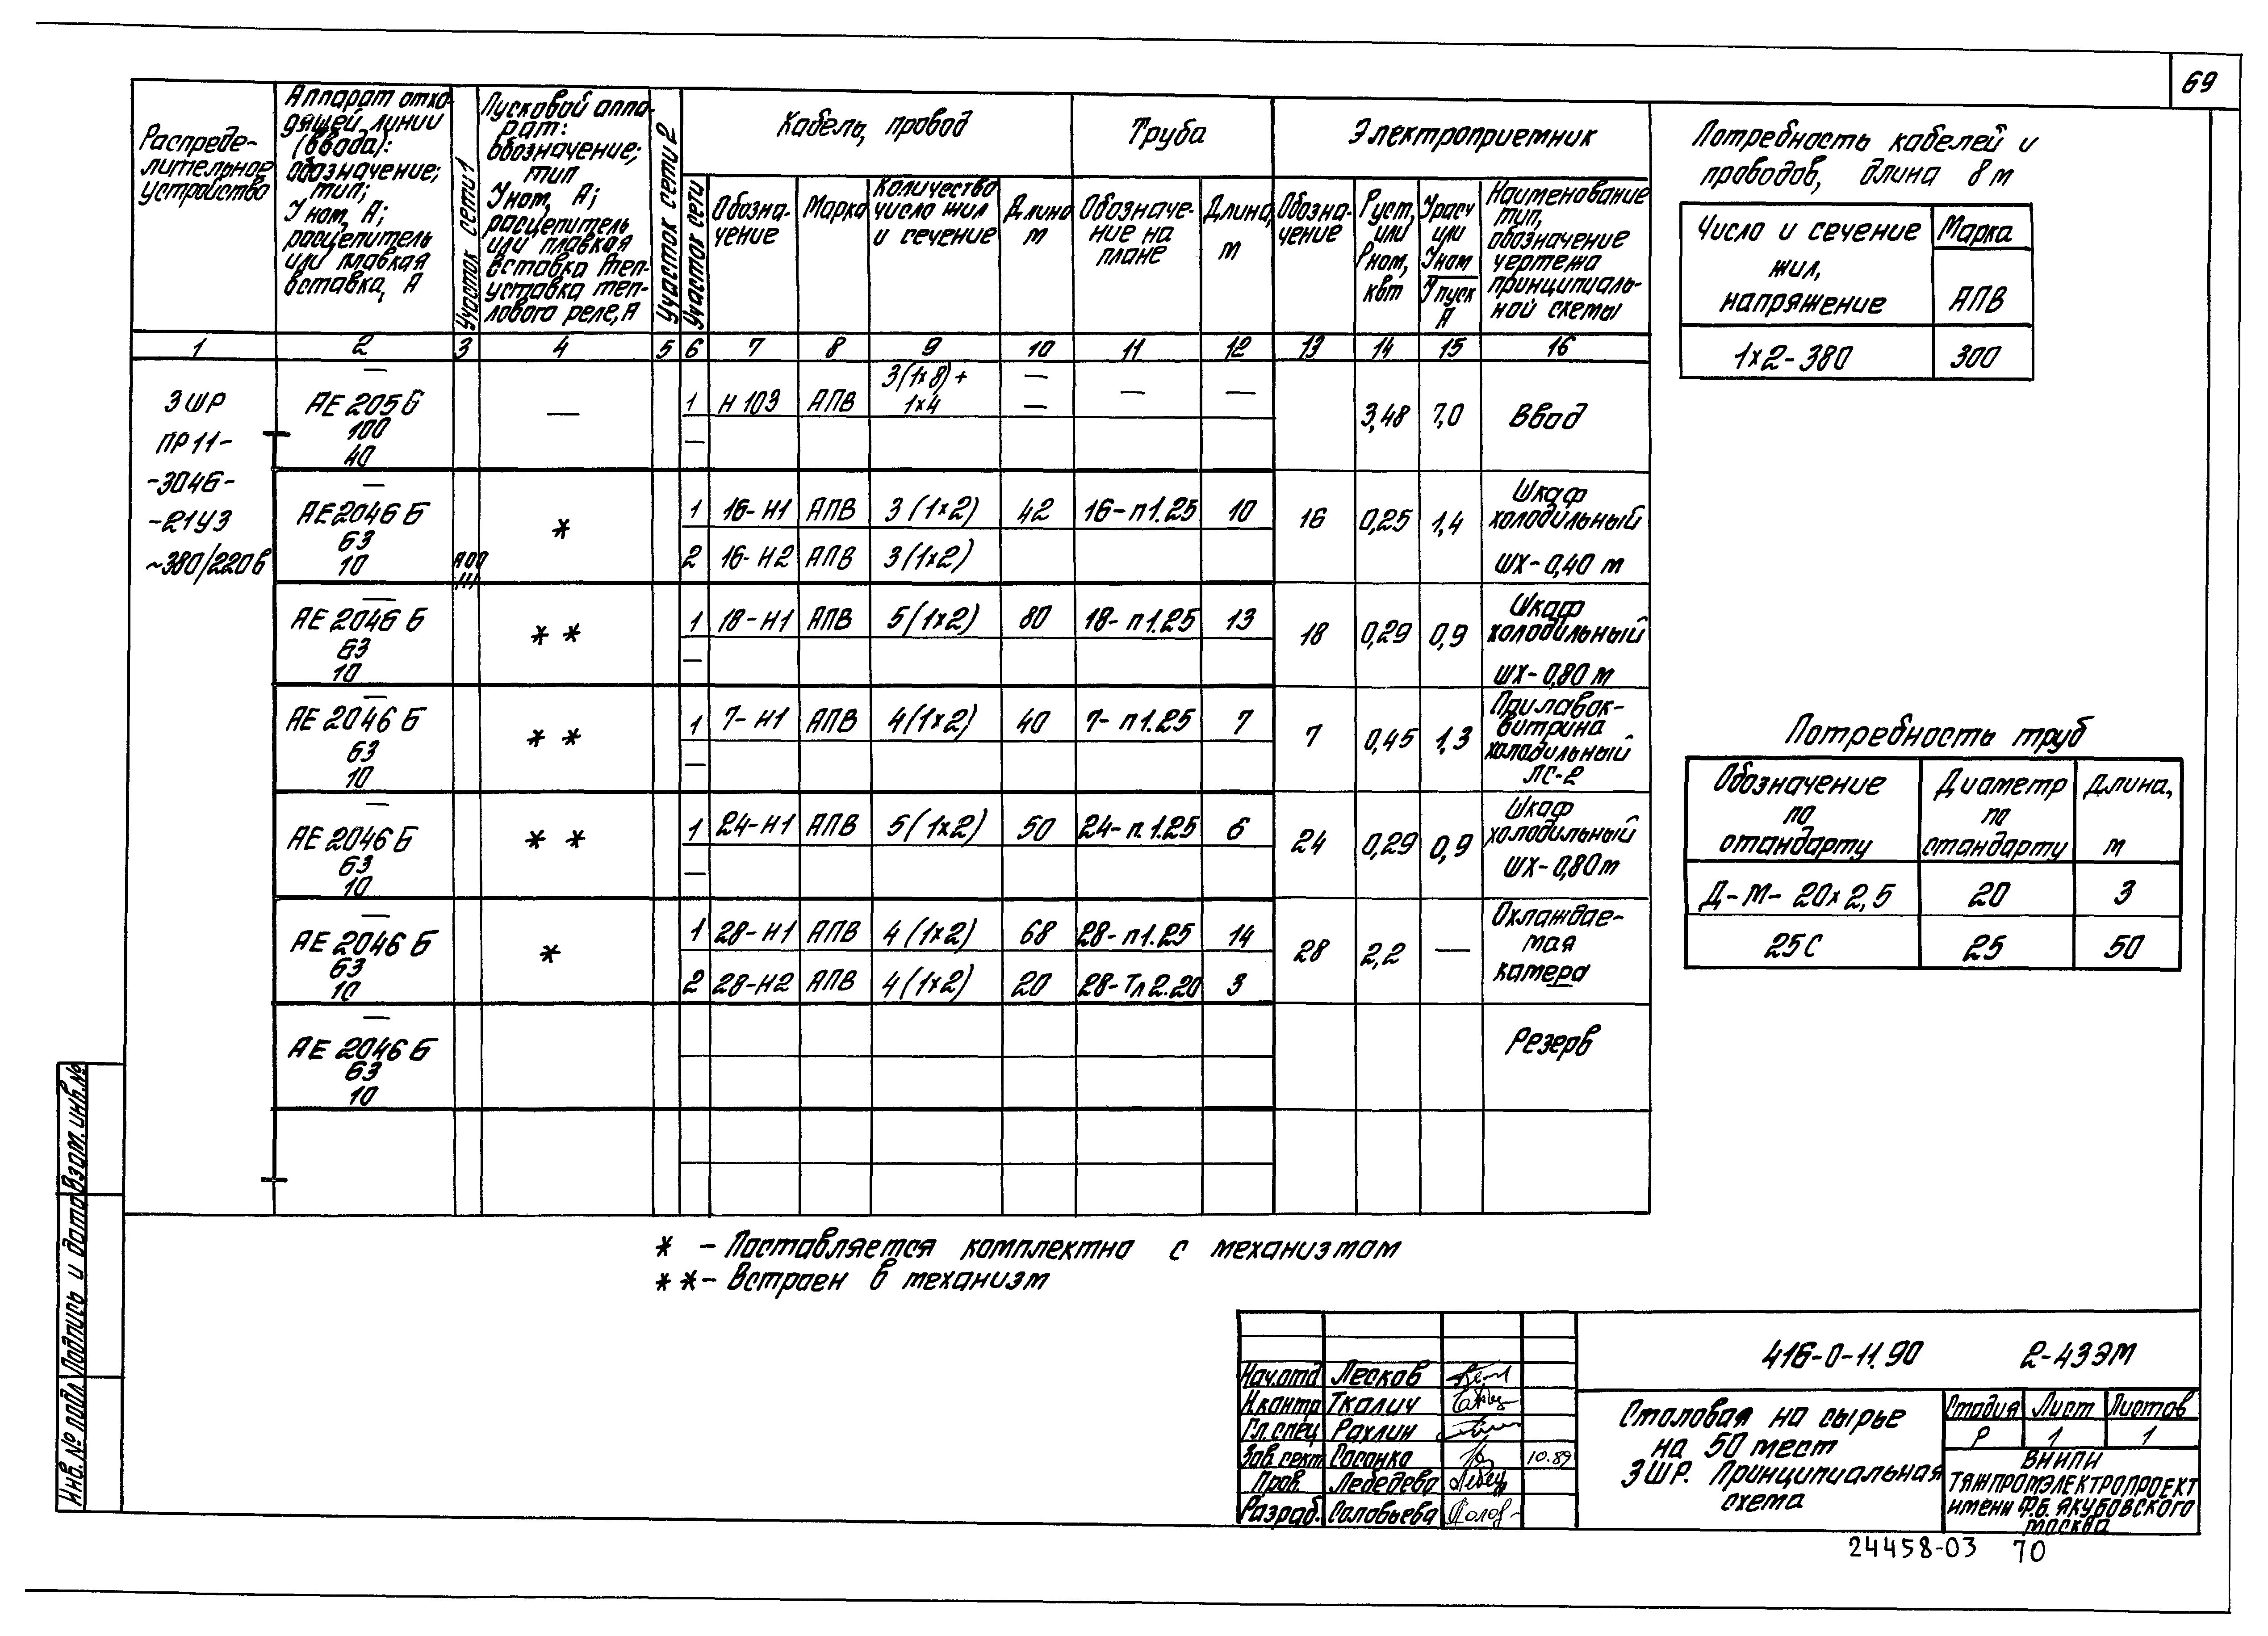 69
Распреде-
лительное
устройство
Аппарат отхо-
дящей линии
(ввода):
обозначение;
тип;
Iном, А;
расцепитель
или плавкая
вставка, А
Участок сети 1
Пусковой аппа-
рат:
обозначение;
тип
Iном, А;
расцепитель
или плавкая
вставка теп-
уставка теп-
лового реле, А
Участок сети 2
Участок сети
Кабель, провод
Обозна-
чение
Марка
Количество
число жил
и сечение
Длина
м
Труба
Обозначе-
ние на
плане
Длина,
м
Электроприемник
Обозна-
чение
Руст,
или
Рном,
кВт
Iрасч
или
Iном
Iпуск
А
Наименование
тип,
обозначение
чертежа
принципиаль-
ной схемы
1 2 3 4 5 6 7 8 9 10 11 12 13 14 15 16
3ШР
ПР11-
-3046-
-21У3
~380/220в
—
АЕ 2056
100
40
—
1 Н103 АПВ 3(1×8)+
1×4
—
—
— —
—
3,48 7,0 Ввод
—
АЕ2046 Б
63
10
*
1 16-Н1 АПВ 3(1×2) 42 16-п1.25 10
2 16-Н2 АПВ 3(1×2)
16 0,25 1,4
Шкаф
холодильный
ШХ-0,40 м
—
АЕ 2046 Б
63
10
* *
1 18-Н1 АПВ 5(1×2) 80 18-п1.25 13
—
18 0,29 0,9
Шкаф
холодильный
ШХ-0,80 м
—
АЕ 2046 Б
63
10
* *
1 7-Н1 АПВ 4(1×2) 40 7-п1.25 7
—
7 0,45 1,3
Прилавок-
витрина
холодильный
ЛС-2
—
АЕ 2046 Б
63
10
* *
1 24-Н1 АПВ 5(1×2) 50 24-п.1.25 6
—
24 0,29 0,9
Шкаф
холодильный
ШХ-0,80м
—
АЕ 2046 Б
63
10
*
1 28-Н1 АПВ 4(1×2) 68 28-п1.25 14
2 28-Н2 АПВ 4(1×2) 20 28-Тл2.20 3
28 2,2 —
Охлаждае-
мая
камера
—
АЕ 2046 Б
63
10
Резерв
* - Поставляется комплектно с механизмом
* * - Встроен в механизм
Потребность кабелей и
проводов, длина в м
Число и сечение
жил,
напряжение
Марка
АПВ
1×2-380 300
Потребность труб
Обозначение
по
стандарту
Диаметр
по
стандарту
Длина,
м
Д-М-20×2,5 20 3
25С 25 50
Инв.№ подл. Подпись и дата Взам.инв.№
Нач.отд Лесков
Н.контр Ткалич
Гл.спец Рахлин
Зав.сект. Сосонко 10.89
Пров. Лебедева
Разраб. Соловьева
416-0-11.90 2-43ЭМ
Столовая на сырье
на 50 мест
3ШР. Принципиальная
схема
Стадия Лист Листов
Р 1 1
ВНИПИ
ТЯЖПРОМЭЛЕКТРОПРОЕКТ
имени Ф.Б. ЯКУБОВСКОГО
МОСКВА
24458-03 70